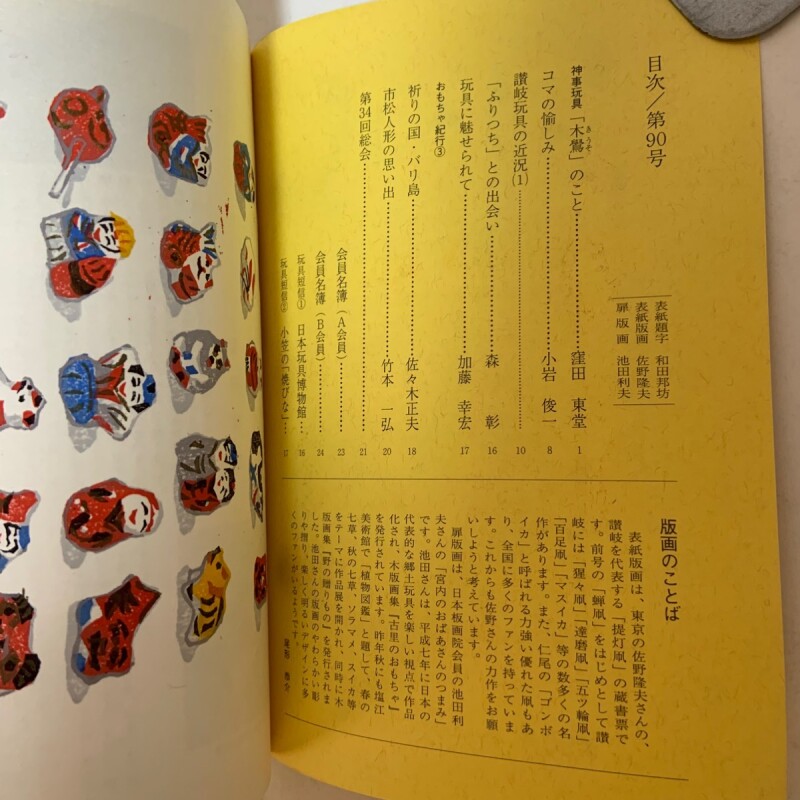 目次／第90号
神事玩具「木鷽」のこと 窪田 東堂 1
きうそ
コマの愉しみ 小岩 俊一 8
讃岐玩具の近況(1) 10
「ふりつち」との出会い 森 彰 16
玩具に魅せられて 加藤 幸宏 17
おもちゃ紀行③
祈りの国・バリ島 佐々木正夫 18
市松人形の思い出 竹本 一弘 20
第34回総会 21
会員名簿（A会員） 23
会員名簿（B会員） 24
玩具短信① 日本玩具博物館 16
玩具短信② 小笠の「焼びな」 17
表紙題字 和田邦坊
表紙版画 佐野隆夫
扉版画 池田利夫
版画のことば
表紙版画は、東京の佐野隆夫さんの、
讃岐を代表する「提灯凧」の蔵書票で
す。前号の「蝉凧」をはじめとして讃
岐には「猩々凧」「達磨凧」「五ツ輪凧」
「百足凧」「マスイカ」等の数多くの名
作があります。また、仁尾の「ゴンボ
イカ」と呼ばれる力強い優れた凧もあ
り、全国に多くのファンを持っていま
す。これからも佐野さんの力作をお願
いしようと考えています。
扉版画は、日本板画院会員の池田利
夫さんの「宮内のおばあさんのつまみ」
です。池田さんは、平成七年に日本の
代表的な郷土玩具を楽しい視点で作品
化され、木版画集『古里のおもちゃ』
を発行されています。昨年秋にも塩江
美術館で「植物図鑑」と題して、春の
七草、秋の七草、ソラマメ、スイカ等
をテーマに作品展を開かれ、同時に木
版画集『野の贈りもの』を発行されま
した。池田さんの版画のやわらかい彫
りや摺り、楽しく明るいデザインに多
くのファンがいるようです。